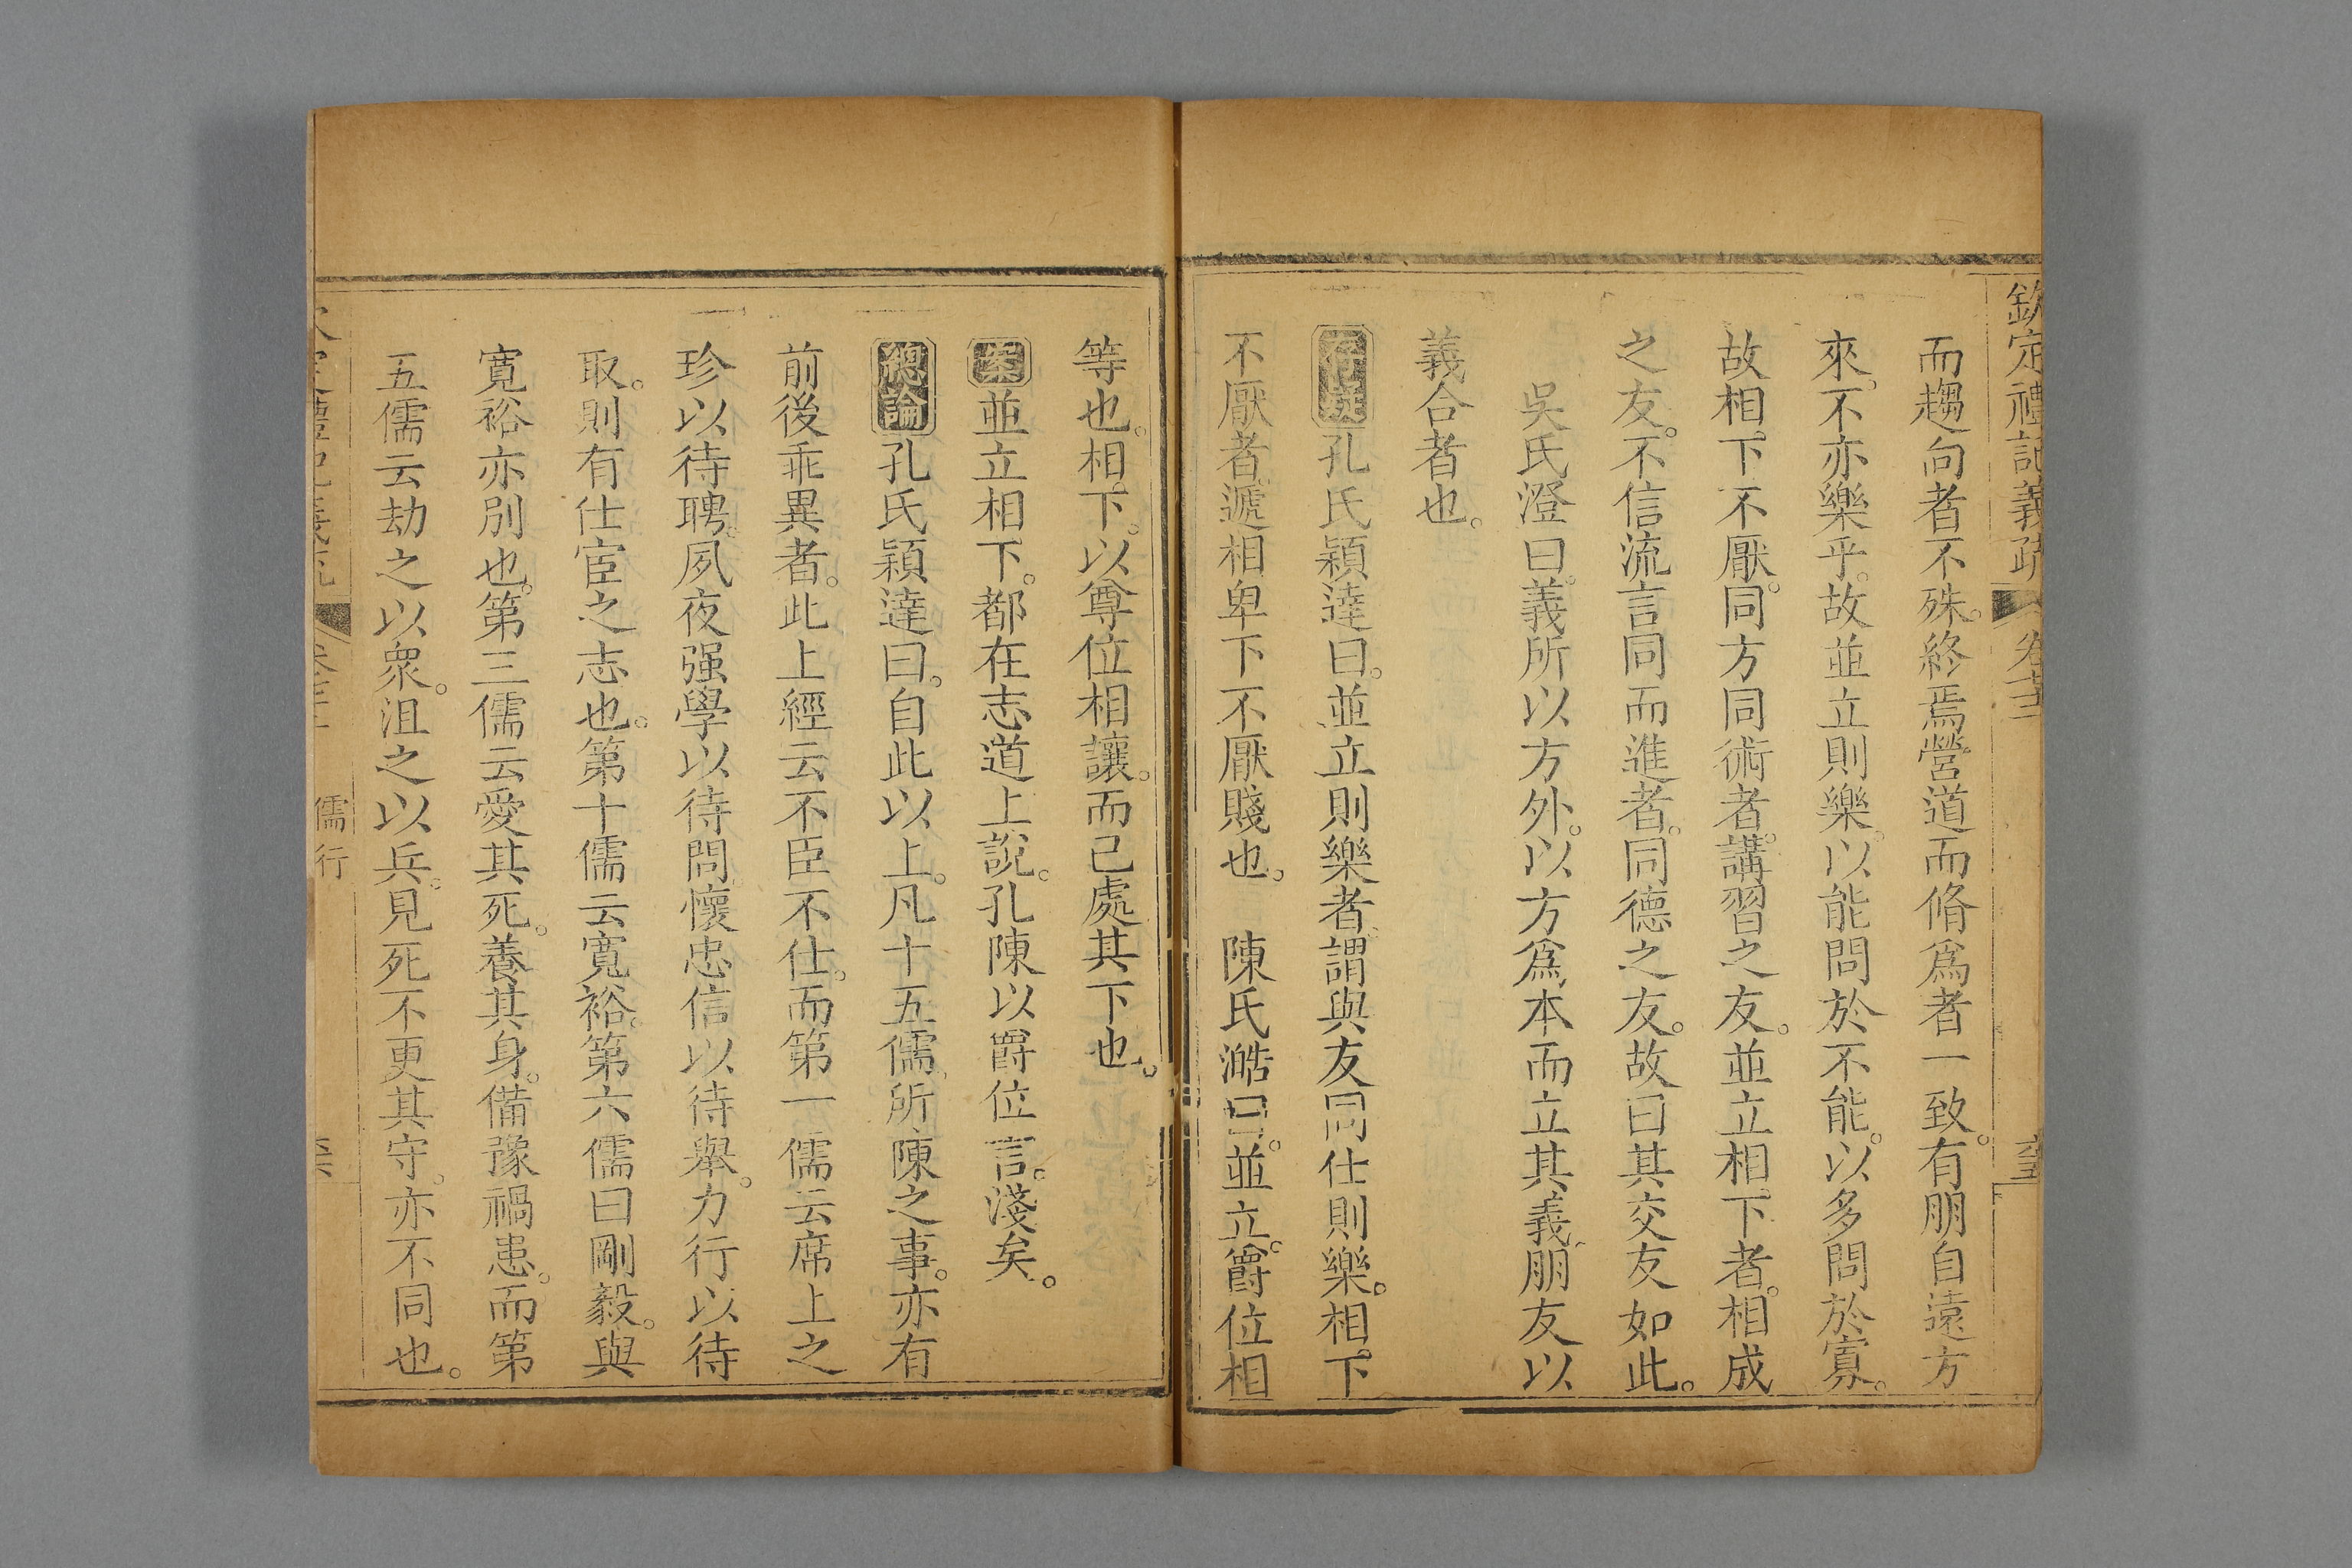 欽定禮記義疏
而趨向者不殊。終焉營道而脩爲者一致。有朋自遠方
來。不亦樂乎。故並立則樂。以能問於不能。以多問於寡。
故相下不厭。同方同術者。講習之友。並立相下者。相成
之友。不信流言同而進者。同德之友。故曰其交友如此。
吳氏澄曰。義所以方外。以方爲本而立其義。朋友以
義合者也。
孔氏穎達曰。並立則樂者。謂與友同仕則樂。相下
不厭者。遞相卑下不厭賤也。　陳氏澔曰。並立。爵位相
等也。相下。以尊位相讓。而己處其下也。
案並立相下。都在志道上說。孔陳以爵位言。淺矣。
總論孔氏穎達曰。自此以上。凡十五儒。所陳之事。亦有
前後乖異者。此上經云不臣不仕。而第一儒云席上之
珍以待聘。夙夜强學以待問。懷忠信以待舉。力行以待
取。則有仕宦之志也。第十儒云寬裕。第六儒曰剛毅。與
寬裕亦別也。第三儒云愛其死。養其身。備豫禍患。而第
五儒云劫之以衆。沮之以兵。見死不更其守。亦不同也。
儒行